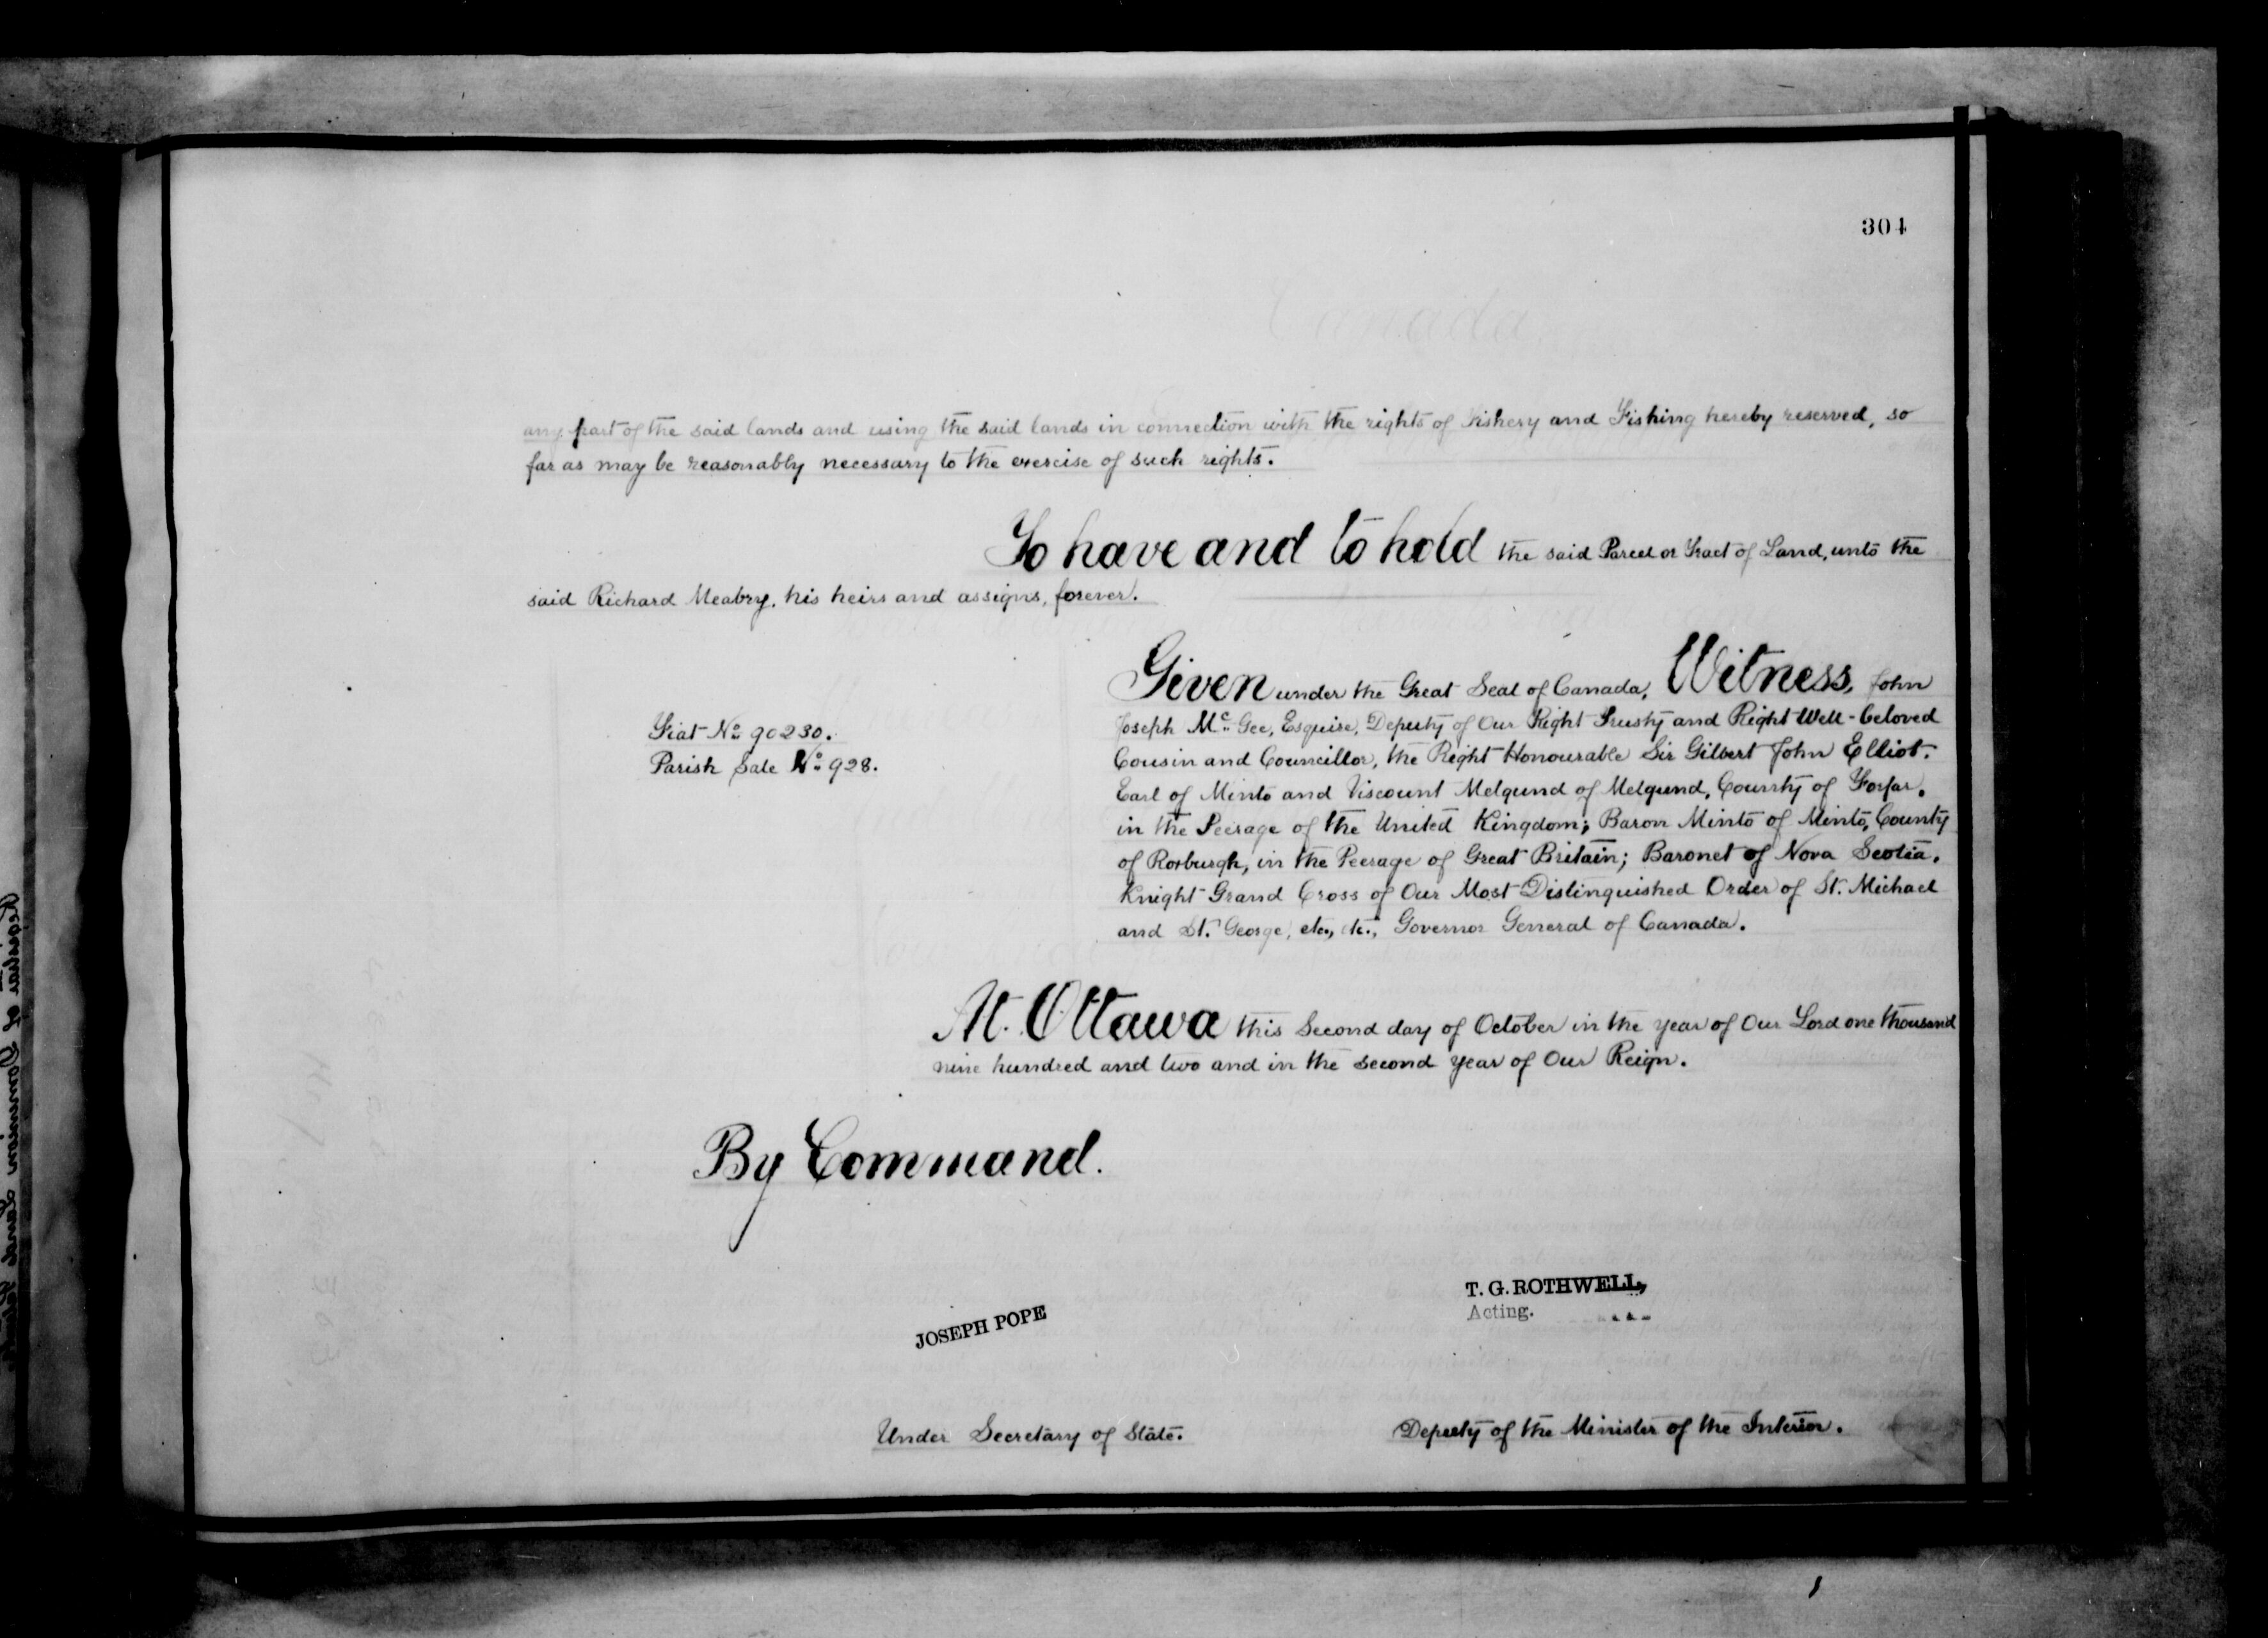 304
any part of the said lands and using the said lands in connection with the rights of Fishery and Fishing hereby reserved, so
far as may be reasonably necessary to the exercise of such rights.
To have and to hold the said Parcel or Tract of Land, unto the
said Richard Meabry, his heirs and assigns, forever.
Given under the Great Seal of Canada, Witness, John
Joseph Mc. Gee, Esquire, Deputy of Our Right Trusty and Right Well-beloved
Cousin and Councillor, the Right Honourable Sir Gilbert John Elliot.
Earl of Minto and Viscount Melgund of Melgund, County of Forfar.
in the Peerage of the United Kingdom; Baron Minto of Minto, County
of Roxburgh, in the Peerage of Great Britain; Baronet of Nova Scotia.
Knight Grand Cross of Our Most Distinguished Order of St. Michael
and St. George, etc., etc., Governor General of Canada.
Fiat No. 90230.
Parish Sale No. 928.
At Ottawa this Second day of October in the year of Our Lord one thousand
nine hundred and two and in the second year of Our Reign.
By Command.
JOSEPH POPE
Under Secretary of State.
T. G. ROTHWELL,
Acting.
Deputy of the Minister of the Interior.